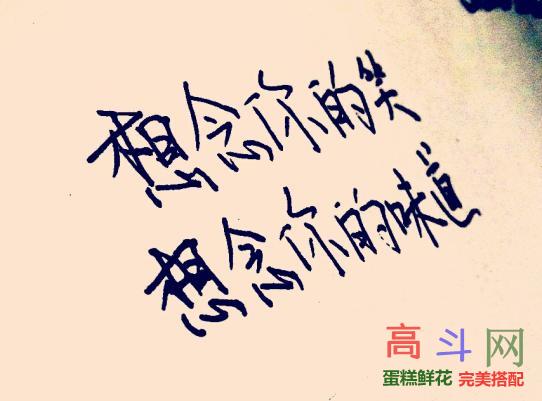 想念你的笑
想念你的味道
高斗网
蛋糕鲜花 完美搭配